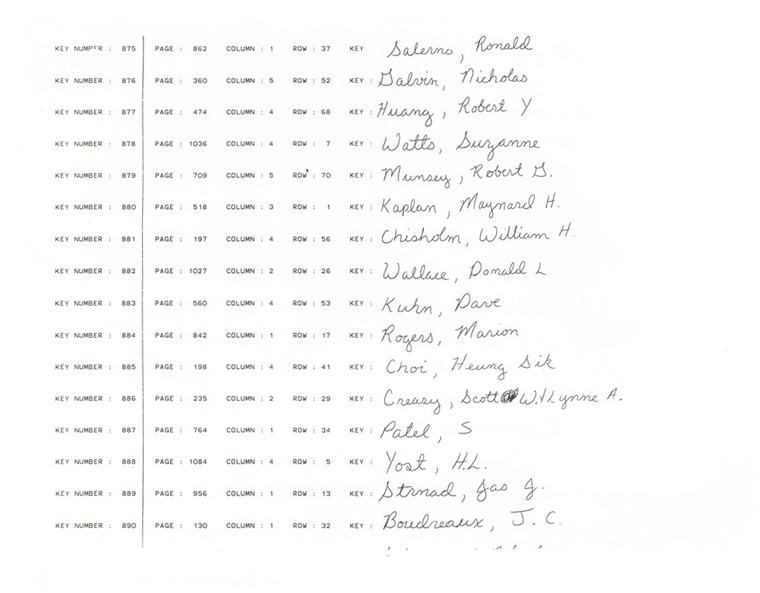 KEY NUMBER : 875 PAGE : 862 COLUMN : 1 ROW : 37 KEY Salerno, Ronald
KEY NUMBER : 876 PAGE : 360 COLUMN : 5 ROW : 52 KEY : Galvin, Nicholas
KEY NUMBER : 877 PAGE : 474 COLUMN : 4 ROW : 68 KEY : Huang, Robert Y
KEY NUMBER : 878 PAGE : 1036 COLUMN : 4 ROW : 7 KEY : Watts, Suzanne
KEY NUMBER : 879 PAGE : 709 COLUMN : 5 ROW : 70 KEY : Munsey, Robert G.
KEY NUMBER : 880 PAGE : 518 COLUMN : 3 ROW : 1 KEY : Kaplan, Maynard H.
KEY NUMBER : 881 PAGE : 197 COLUMN : 4 ROW : 56 KEY : Chisholm, William H.
KEY NUMBER : 882 PAGE : 1027 COLUMN : 2 ROW : 26 KEY : Wallace, Donald L
KEY NUMBER : 883 PAGE : 560 COLUMN : 4 ROW : 53 KEY : Kuhn, Dave
KEY NUMBER : 884 PAGE : 842 COLUMN : 1 ROW : 17 KEY : Rogers, Marion
KEY NUMBER : 885 PAGE : 198 COLUMN : 4 ROW : 41 KEY : Choi, Heung Sik
KEY NUMBER : 886 PAGE : 235 COLUMN : 2 ROW : 29 KEY : Creasy, Scott W. + Lynne A.
KEY NUMBER : 887 PAGE : 764 COLUMN : 1 ROW : 34 KEY : Patel, S
KEY NUMBER : 888 PAGE : 1084 COLUMN : 4 ROW : 5 KEY : Yost, H.L.
KEY NUMBER : 889 PAGE : 956 COLUMN : 1 ROW : 13 KEY : Strnad, Jas J.
KEY NUMBER : 890 PAGE : 130 COLUMN : 1 ROW : 32 KEY : Boudreaux, J. C.